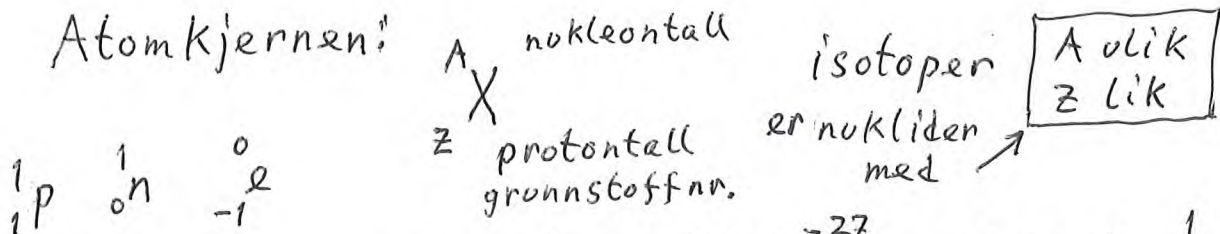 Atomkjernen:
A nukleontall
X
Z protontall
grunnstoffnr.
isotoper
er nuklider
med
A ulik
Z lik
1 1 0
1 p 0 n -1 e
-27 1